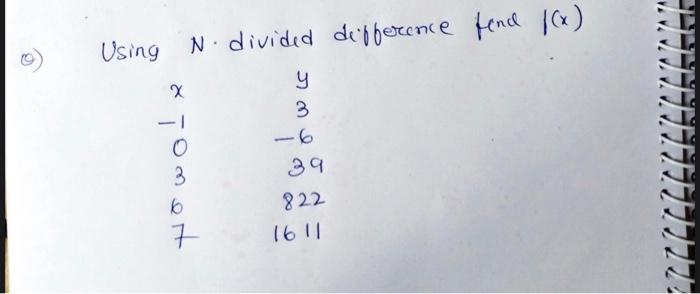 Q) Using N. divided difference find f(x)
x y
-1 3
0 -6
3 39
6 822
7 1611